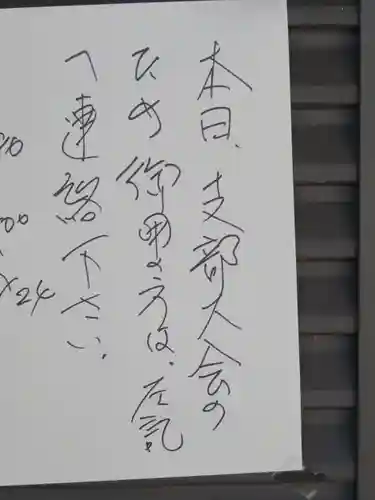 本日、支部大会の
ため御用の方は、左記
へ連絡下さい。